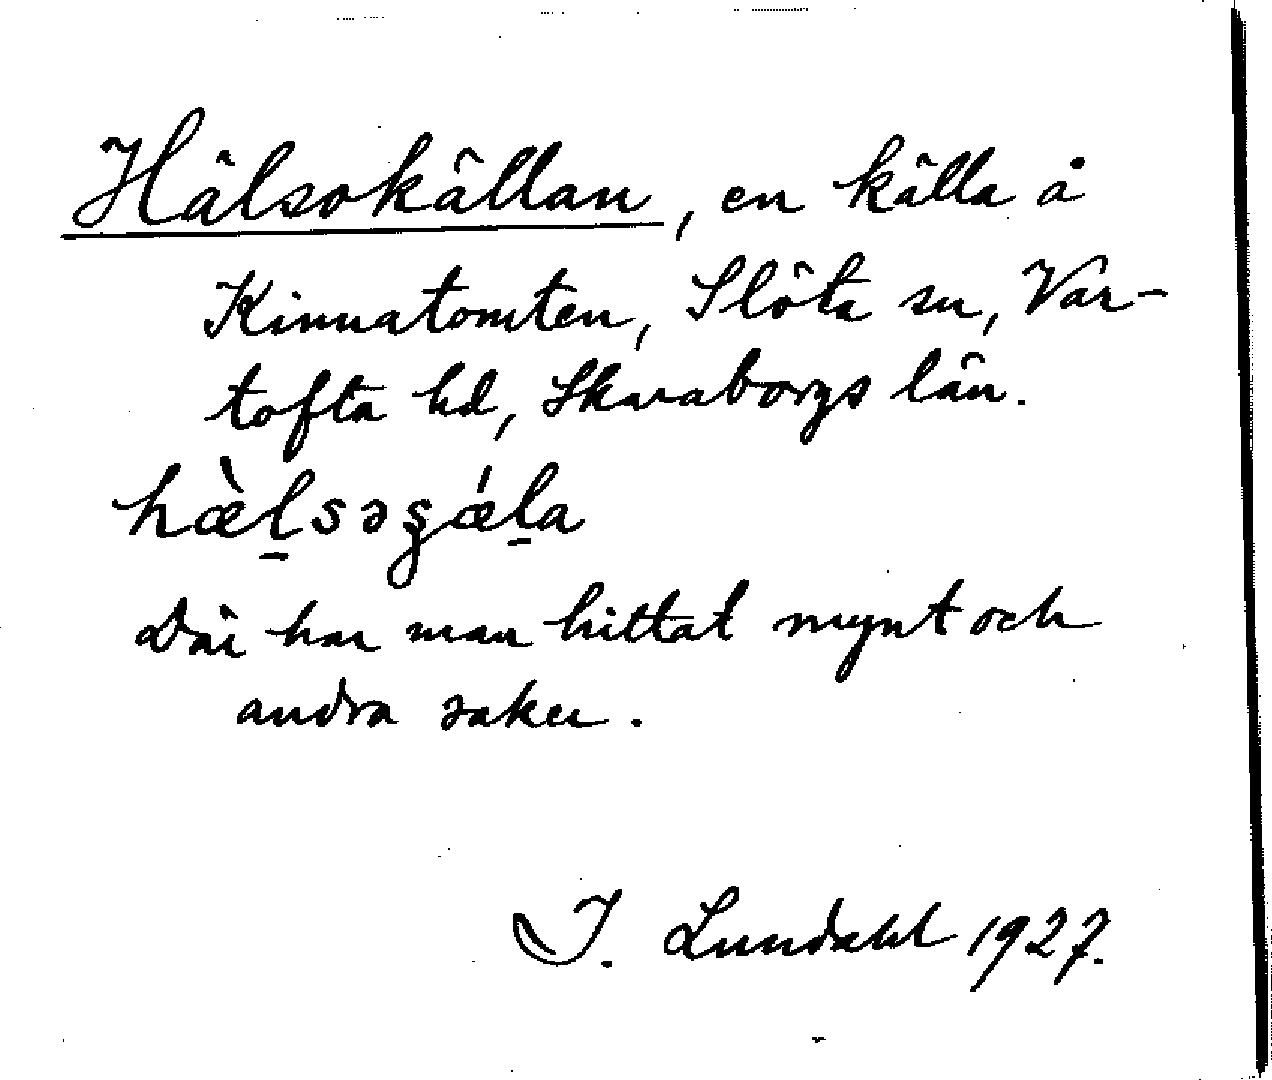 Hälsokällan, en källa å
Kinnatomten, Slöta sn, Var-
tofta hd, Skaraborgs län.
hæ̀l̠səʂǽl̠a
Där har man hittat mynt och
andra saker.
I. Lundahl 1927.